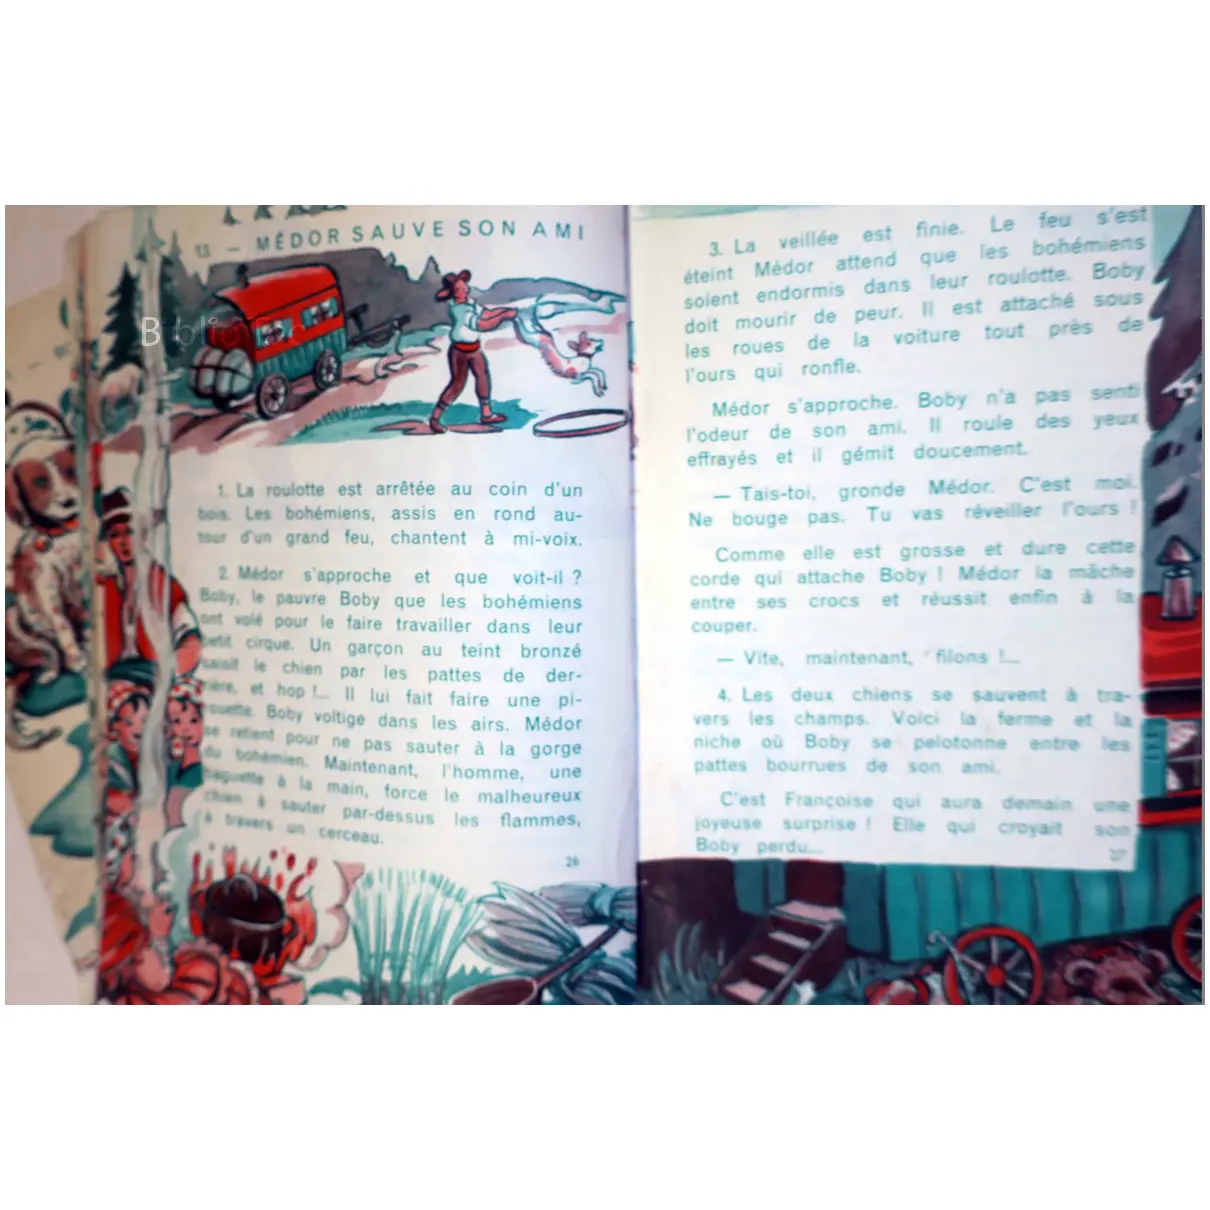 13 — MÉDOR SAUVE SON AMI
1. La roulotte est arrêtée au coin d'un
bois. Les bohémiens, assis en rond au-
tour d'un grand feu, chantent à mi-voix.
2. Médor s'approche et que voit-il ?
Boby, le pauvre Boby que les bohémiens
ont volé pour le faire travailler dans leur
petit cirque. Un garçon au teint bronzé
saisit le chien par les pattes de der-
rière, et hop !... Il lui fait faire une pi-
rouette. Boby voltige dans les airs. Médor
se retient pour ne pas sauter à la gorge
du bohémien. Maintenant, l'homme, une
baguette à la main, force le malheureux
chien à sauter par-dessus les flammes,
à travers un cerceau.
26
3. La veillée est finie. Le feu s'est
éteint Médor attend que les bohémiens
soient endormis dans leur roulotte. Boby
doit mourir de peur. Il est attaché sous
les roues de la voiture tout près de
l'ours qui ronfle.
Médor s'approche. Boby n'a pas senti
l'odeur de son ami. Il roule des yeux
effrayés et il gémit doucement.
— Tais-toi, gronde Médor. C'est moi.
Ne bouge pas. Tu vas réveiller l'ours !
Comme elle est grosse et dure cette
corde qui attache Boby ! Médor la mâche
entre ses crocs et réussit enfin à la
couper.
— Vite, maintenant, filons !...
4. Les deux chiens se sauvent à tra-
vers les champs. Voici la ferme et la
niche où Boby se pelotonne entre les
pattes bourrues de son ami.
C'est Françoise qui aura demain une
joyeuse surprise ! Elle qui croyait son
Boby perdu...